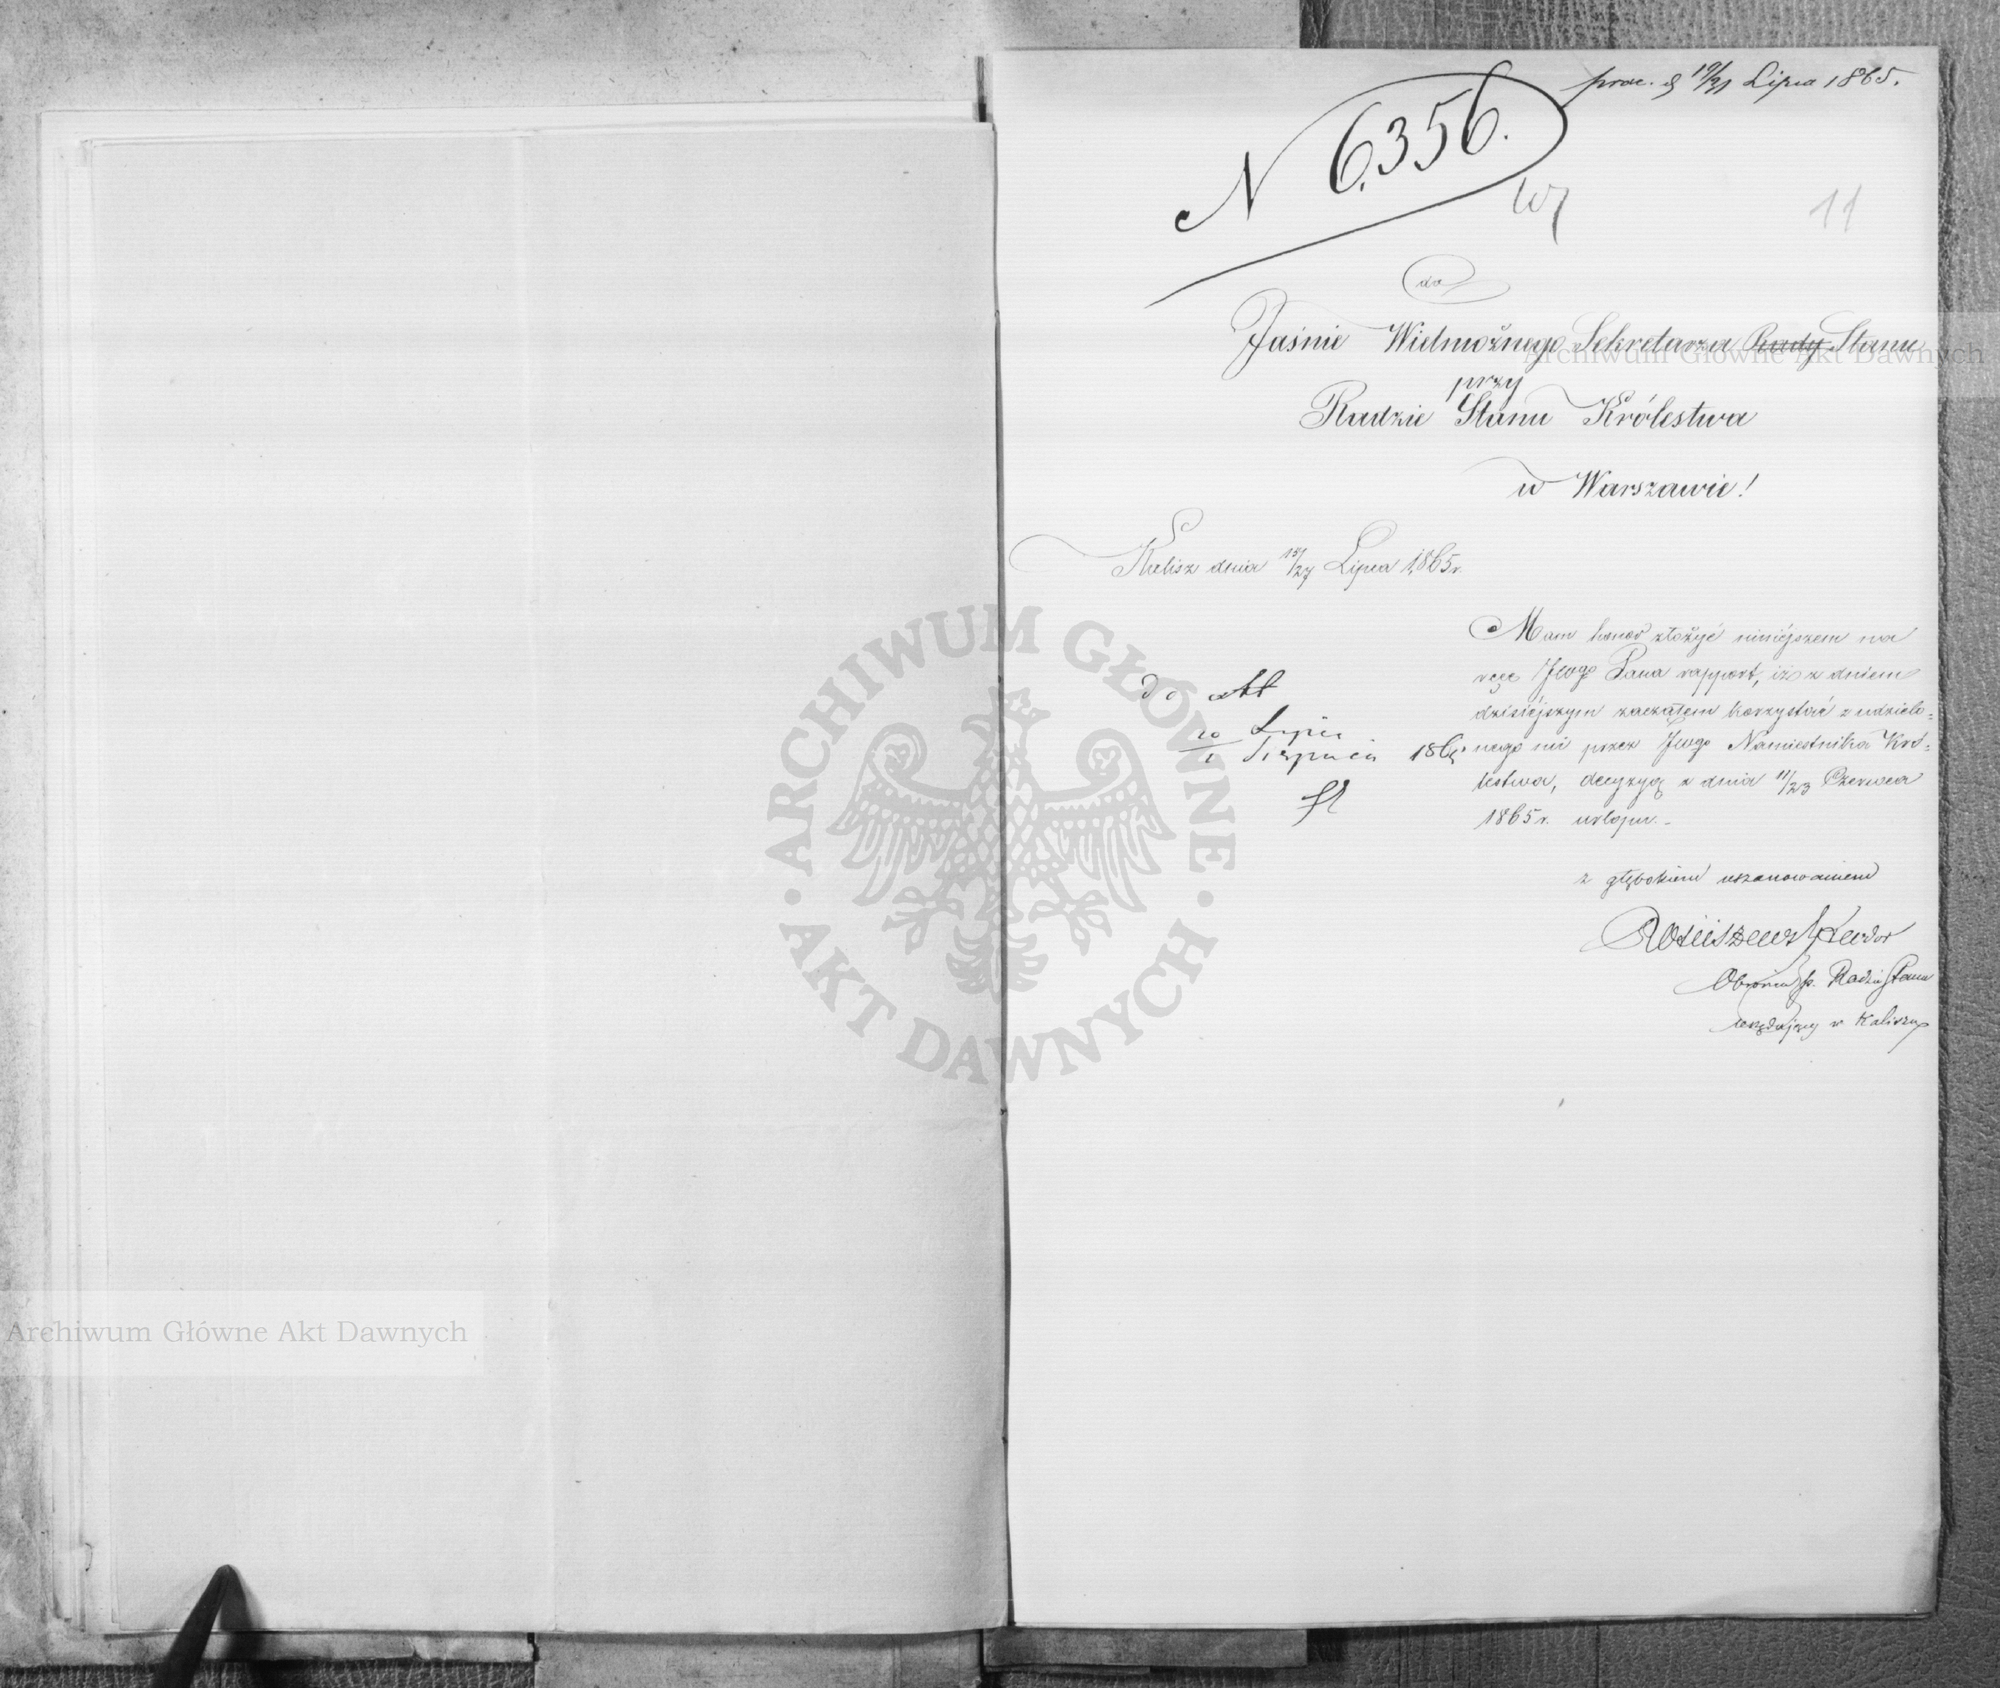 prae. d 19/31 Lipca 1865.
N 6356.
11
do
Jaśnie Wielmożnego Sekretarza Rady Stanu
przy
Radzie Stanu Królestwa
w Warszawie!
Kalisz dnia 15/27 Lipca 1865 r.
Mam honor złożyć niniéjszem na
ręce JWgo Pana rapport, iż z dniem
dzisiéjszym zacząłem korzystać z udzielo=
nego mi przez JWgo Namiestnika Kró=
lestwa, decyzyą z dnia 11/23 Czerwca
1865 r. urlopu.
do akt
20 Lipca
1 Sierpnia 1865
z głębokiem uszanowaniem
Obrońca p. Radzie Stanu
urzędujący w Kaliszu
ARCHIWUM GŁÓWNE
AKT DAWNYCH
Archiwum Główne Akt Dawnych
Archiwum Główne Akt Dawnych